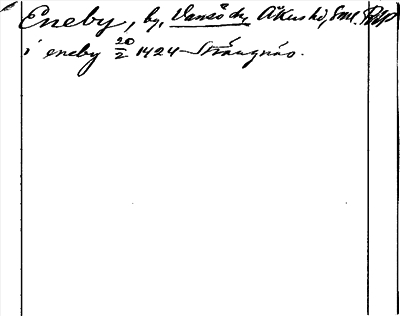 Eneby, by, Vansö sn, Åkers hd, Sml. RAP
i eneby 20/2 1424 Strängnäs.